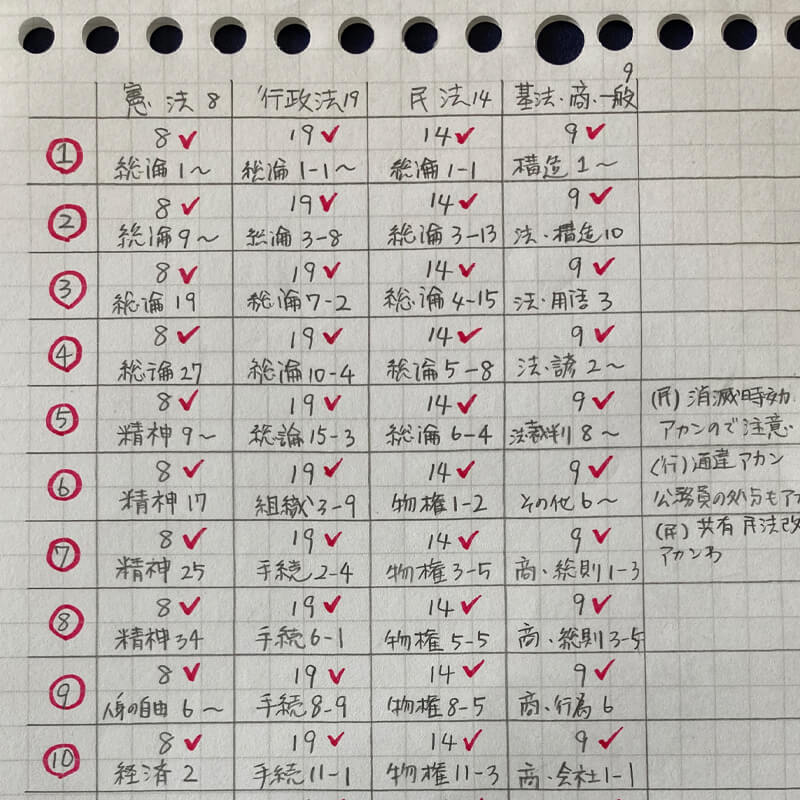 9
憲法 8 行政法19 民法14 基法・商・一般
① 8✓ 19✓ 14✓ 9✓
総論 1〜 総論 1-1〜 総論 1-1 構造 1〜
② 8✓ 19✓ 14✓ 9✓
総論 9〜 総論 3-8 総論 3-13 法・構造10
③ 8✓ 19✓ 14✓ 9✓
総論 19 総論 7-2 総論 4-15 法・用語 3
④ 8✓ 19✓ 14✓ 9✓
総論 27 総論 10-4 総論 5-8 法・諺 2〜
⑤ 8✓ 19✓ 14✓ 9✓ (民) 消滅時効
精神 9〜 総論 15-3 総論 6-4 法裁判 8〜 アカンので注意
⑥ 8✓ 19✓ 14✓ 9✓ (行) 通達アカン
精神 17 組織 3-9 物権 1-2 その他 6〜 公務員の処分もア
⑦ 8✓ 19✓ 14✓ 9✓ (民) 共有 民法改
精神 25 手続 2-4 物権 3-5 商・総則 1-3 アカンわ
⑧ 8✓ 19✓ 14✓ 9✓
精神 34 手続 6-1 物権 5-5 商・総則 3-5
⑨ 8✓ 19✓ 14✓ 9✓
人身の自由 6〜 手続 8-9 物権 8-5 商・行為 6
⑩ 8✓ 19✓ 14✓ 9✓
経済 2 手続 11-1 物権 11-3 商・会社 1-1